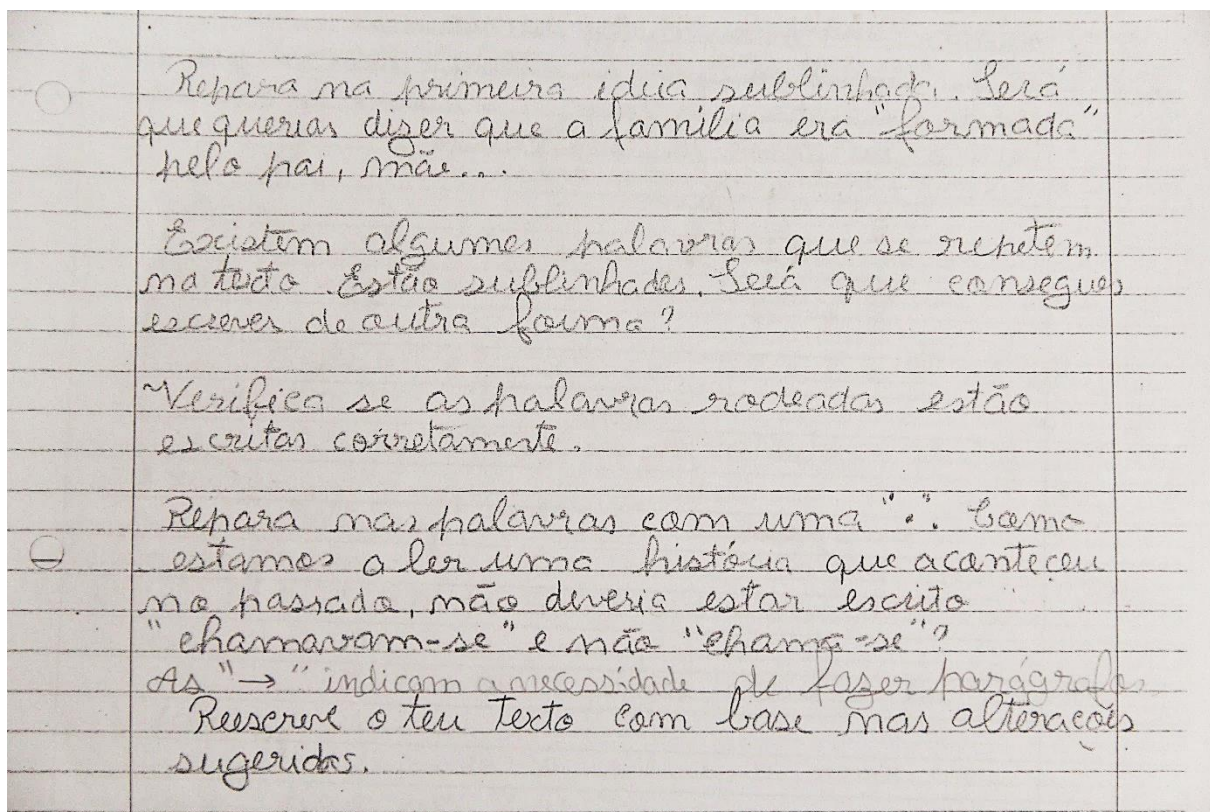 Repara na primeira ideia sublinhada. Será
que querias dizer que a família era "formada"
pelo pai, mãe...
Existem algumas palavras que se repetem
no texto. Estão sublinhadas. Será que consegues
escreves de outra forma?
Verifica se as palavras rodeadas estão
escritas corretamente.
Repara nas palavras com uma "•". Como
estamos a ler uma história que aconteceu
no passado, não deveria estar escrito
"chamavam-se" e não "chama-se"?
As "→" indicam a necessidade de fazer parágrafos
Reescreve o teu texto com base nas alterações
sugeridas.